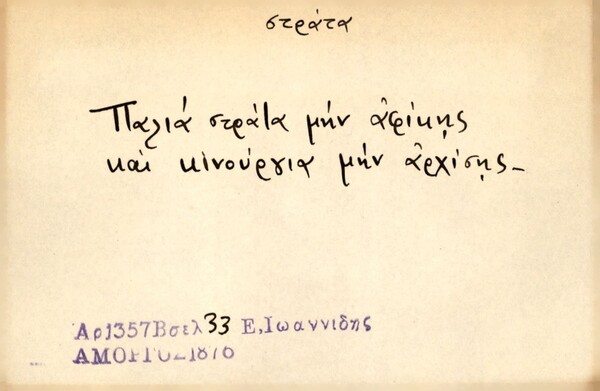 στράτα
Παλιά στράτα μήν ἀφίκῃς
καὶ κινούργια μήν ἀρχίσῃς_
Αρ1357Βσελ33 Ε,Ιωαννιδης
ΑΜΟΡΓΟΣ1876